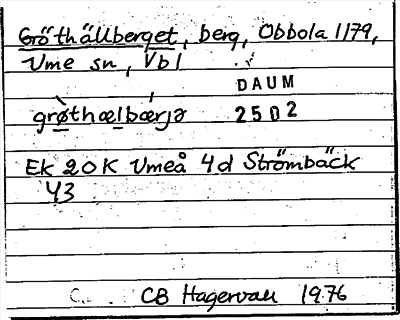 Gröthällberget, berg, Obbola 1179,
Ume sn, Vbl
DAUM
2502
grøthælbærjə
Ek 20K Umeå 4d Strömbäck
Y3
CB Hagervall 1976